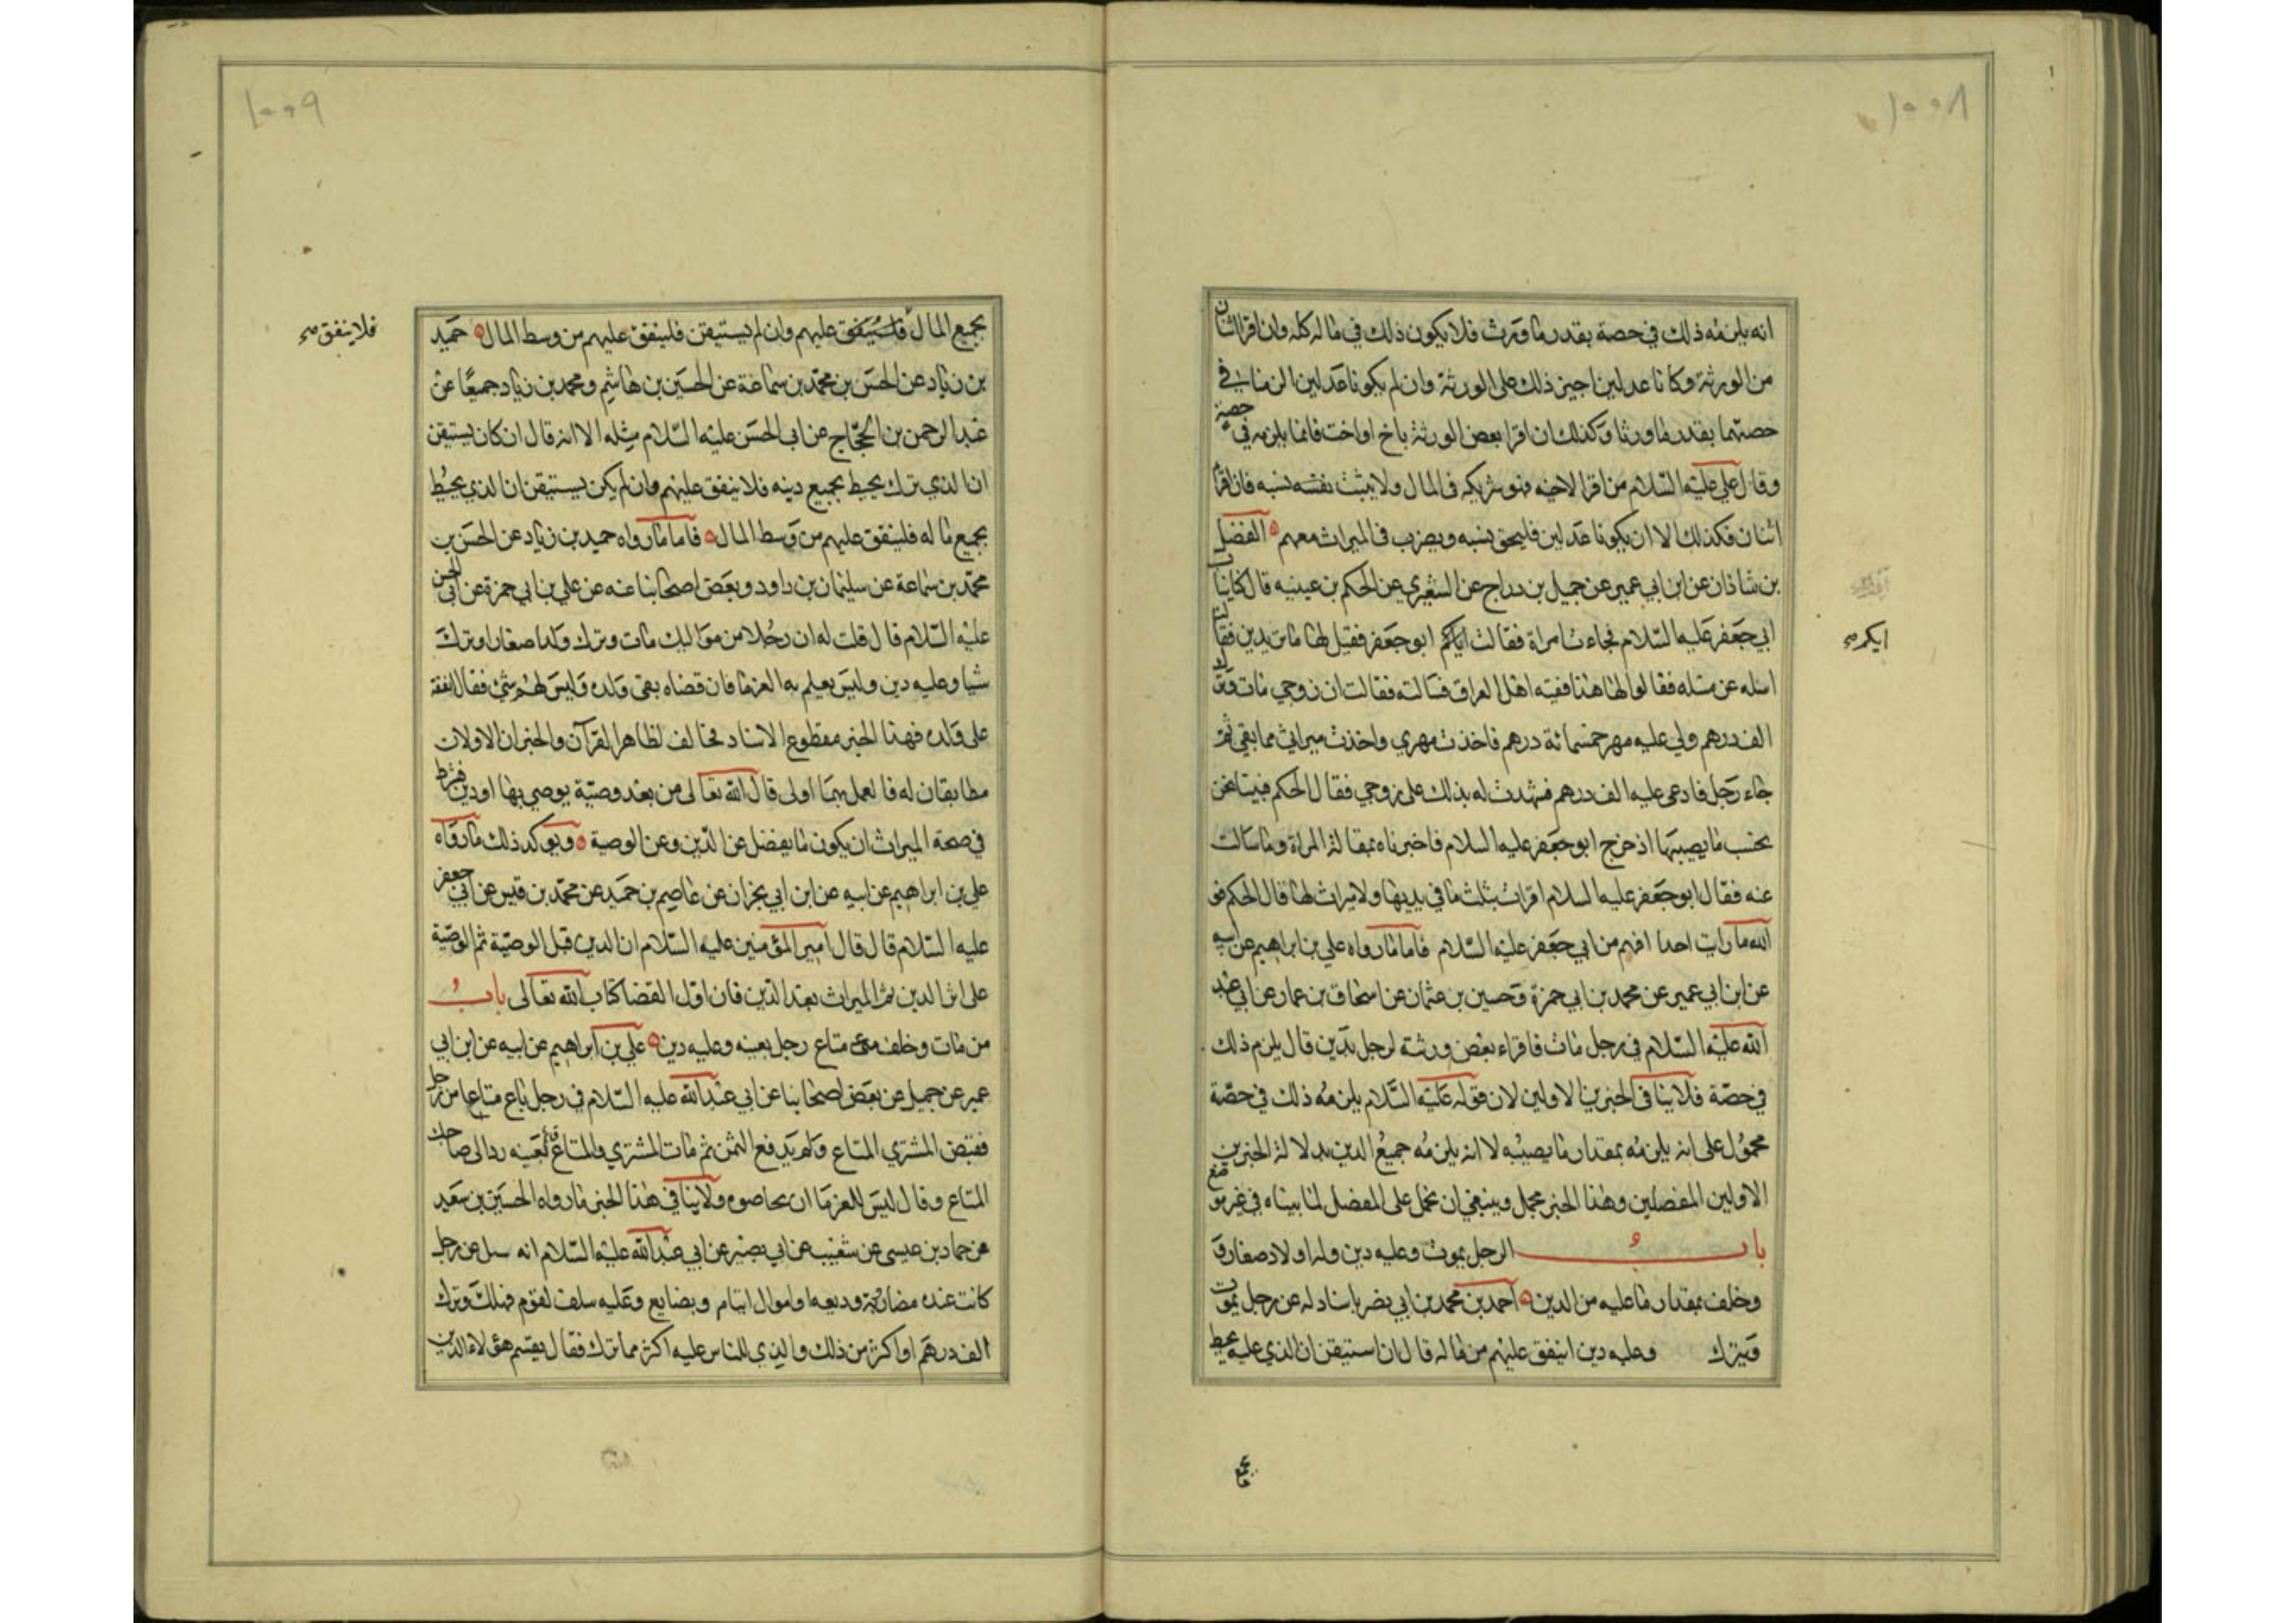 ١٠٠٨
انه يلزمه ذلك في حصة بقدر ما ورث فلا يكون ذلك في ماله كله وان اقر اثنان
من الورثة وكانا عدلين اجيز ذلك على الورثة وان لم يكونا عدلين الزما في
حصتهما بقدر ما ورثا وكذلك ان اقر بعض الورثة باخ او اخت فانما يلزمه في حصته
وقال علي عليه السلام من اقر لاخيه فهو شريكه في المال ولا يثبت نفسه نسبه فان اقر
اثنان فكذلك الا ان يكونا عدلين فليحق بنسبه ويضرب في الميراث معهم الفضل
بن شاذان عن ابن ابي عمير عن جميل بن دراج عن الشعيري عن الحكم بن عيينه قال كنا بباب
ابي جعفر عليه السلام فجاءت امراة فقالت ايكم ابو جعفر فقيل لها ما تريدين فقالت
ايكم
اسئله عن مسئله فقالوا لها هذا فقيه اهل العراق فسالته فقالت ان زوجي مات وترك
الف درهم ولي عليه مهر خمسمائة درهم فاخذت مهري واخذت ميراثي مما بقي ثم
جاء رجل فادعى عليه الف درهم فشهدت له بذلك على زوجي فقال الحكم فبينا نحن
نحسب ما يصيبها اذ خرج ابو جعفر عليه السلام فاخبرناه بمقالة المراة وما سالت
عنه فقال ابو جعفر عليه السلام اقرت بثلث ما في يديها ولا ميراث لها قال الحكم فو
الله ما رايت احدا افهم من ابي جعفر عليه السلام فاما ما رواه علي بن ابراهيم عن ابيه
عن ابن ابي عمير عن محمد بن ابي حمزة وحسين بن عثمان عن اسحاق بن عمار عن ابي عبد
الله عليه السلام في رجل مات فاقراء بعض ورثته لرجل بدين قال يلزم ذلك
في حصة فلا ينافي الخبرين الاولين لان قوله عليه السلام يلزمه ذلك في حصة
محمول على انه يلزمه بمقدار ما يصيبه لا انه يلزمه جميع الدين بدلالة الخبرين
الاولين المفصلين وهذا الخبر مجمل وينبغي ان نحمل على المفصل لما بيناه في غير موضع
باب الرجل يموت وعليه دين وله اولاد صغار و
وخلف بمقدار ما عليه من الدين احمد بن محمد بن ابي نصر باسناد له عن رجل يموت
ويترك وعليه دين اينفق عليهم من ماله قال ان استيقن ان الذي عليه يحيط
١٠٠٩
بجميع المال فلا ينفق عليهم وان لم يستيقن فلينفق عليهم من وسط المال حميد
فلا ينفق
بن زياد عن الحسن بن محمد بن سماعة عن الحسين بن هاشم ومحمد بن زياد جميعا عن
عبد الرحمن بن الحجاج عن ابي الحسن عليه السلام مثله الا انه قال ان كان يستيقن
ان الذي ترك يحيط بجميع دينه فلا ينفق عليهم وان لم يكن يستيقن ان الذي يحيط
بجميع ماله فلينفق عليهم من وسط المال فاما ما رواه حميد بن زياد عن الحسن بن
محمد بن سماعة عن سليمان بن داود وبعض اصحابنا عنه عن علي بن ابي حمزة عن ابي الحسن
عليه السلام قال قلت له ان رجلا من مواليك مات وترك ولدا صغارا وترك
شيا وعليه دين وليس يعلم به الغرما فان قضاه بقى ولده وليس لهم شئ فقال انفقه
على ولده فهذا الخبر مقطوع الاسناد مخالف لظاهر القرآن والخبران الاولان
مطابقان له فالعمل بهما اولى قال الله تعالى من بعد وصية يوصي بها او دين فشرط
في صحة الميراث ان يكون ما يفضل عن الدين وعن الوصية ويوكد ذلك ما رواه
علي بن ابراهيم عن ابيه عن ابن ابي نجران عن عاصم بن حميد عن محمد بن قيس عن ابي جعفر
عليه السلام قال قال امير المؤمنين عليه السلام ان الدين قبل الوصية ثم الوصية
على اثر الدين ثم الميراث بعد الدين فان اول القضا كتاب الله تعالى باب
من مات وخلف متاع رجل بعينه وعليه دين علي بن ابراهيم عن ابيه عن ابن ابي
عمير عن جميل عن بعض اصحابنا عن ابي عبد الله عليه السلام في رجل باع متاعا من رجل
فقبض المشتري المتاع ولم يدفع الثمن ثم مات المشتري والمتاع قائم بعينه رد الى صاحب
المتاع وقال ليس للغرما ان يحاصوه ولا ينافي هذا الخبر ما رواه الحسين بن سعيد
عن حماد بن عيسى عن شعيب عن ابي بصير عن ابي عبد الله عليه السلام انه سئل عن رجل
كانت عنده مضاربة وديعه واموال ايتام وبضايع وعليه سلف لقوم فهلك وترك
الف درهم او اكثر من ذلك والذي للناس عليه اكثر مما ترك فقال يقسم هؤلاء الذين